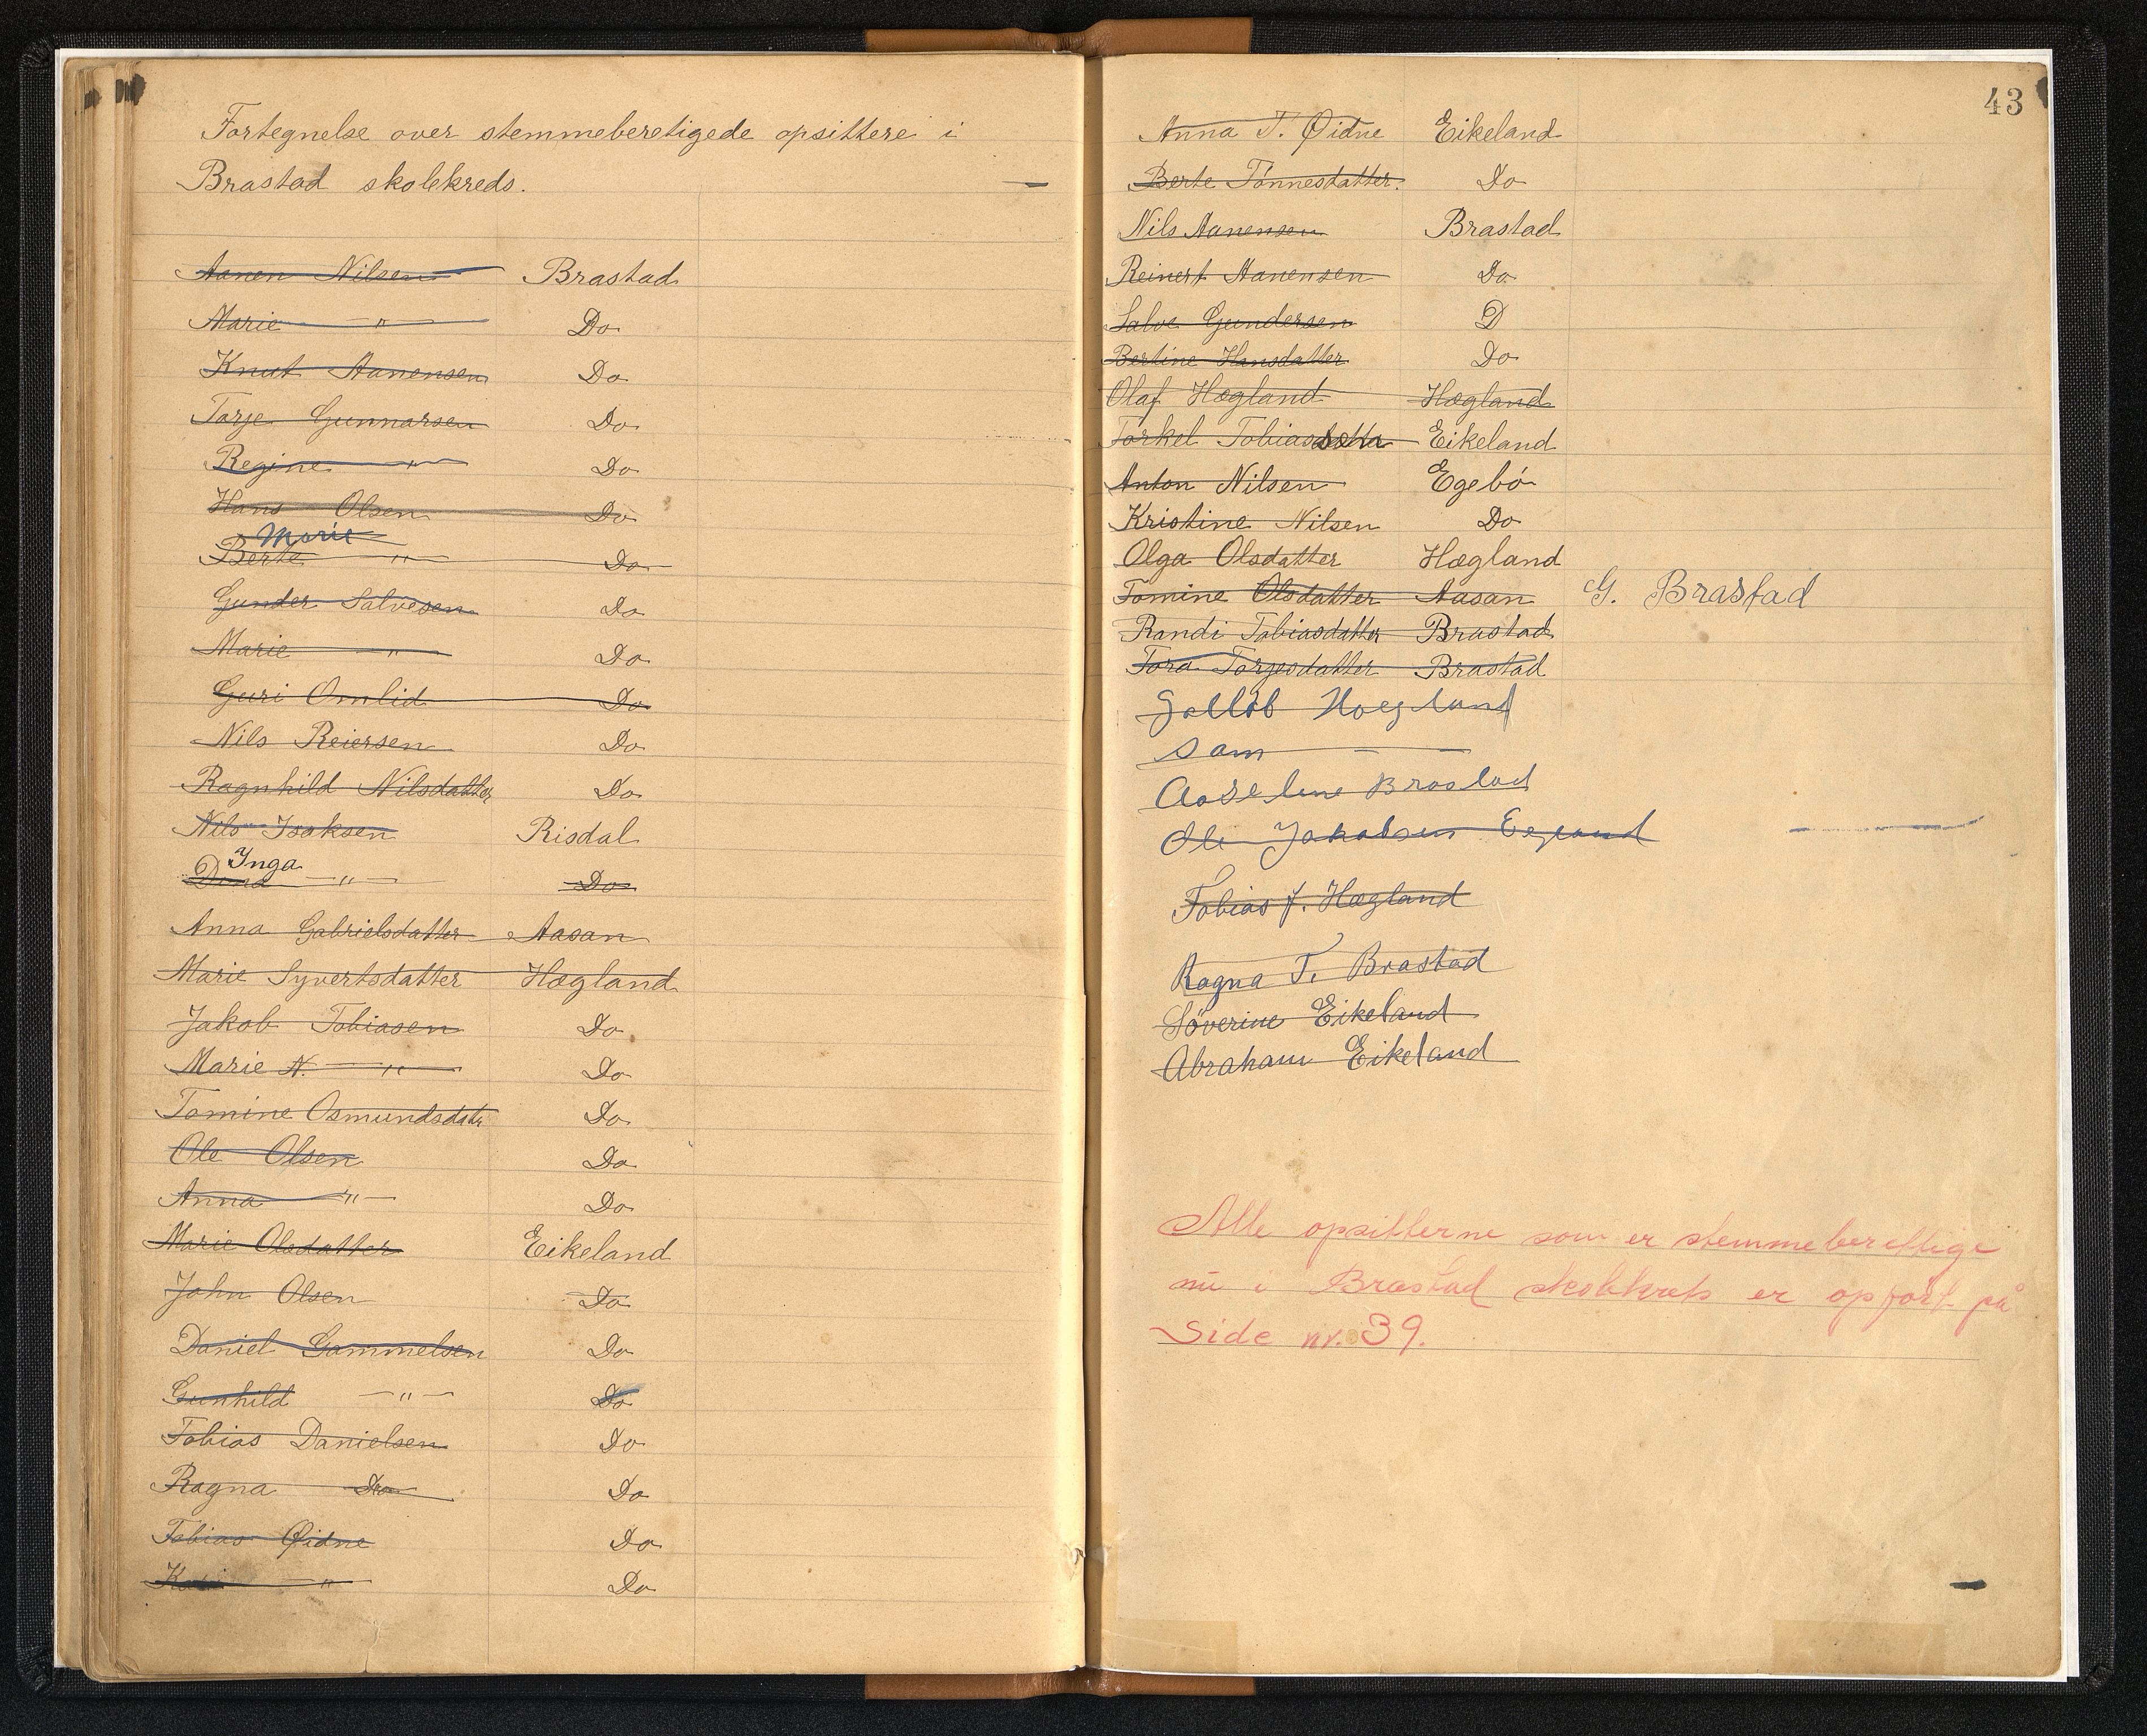 Fortegnelse over stemmeberetigede opsittere i
Brastad skolekreds.
Aanen Nilsen Brastad
Marie — " — Do
Knut Aanensen Do
Torje Gunnarsen Do
Regine — " — Do
Hans Olsen Do
Marie
Berte — " — Do
Gunder Salvesen Do
Marie — " — Do
Guri Omlid Do
Nils Reiersen Do
Ragnhild Nilsdatter Do
Nils Isaksen Risdal
Inga
Dina — " — Do
Anna Gabrielsdatter Aasan
Marie Syvertsdatter Hægland
Jakob Tobiasen Do
Marie N. — " — Do
Tomine Osmundsdatr Do
Ole Olsen Do
Anna — " — Do
Marie Olsdatter Eikeland
John Olsen Do
Daniel Gammelsen Do
Gunhild — " — Do
Tobias Danielsen Do
Ragna Do Do
Tobias Øidne Do
Kari — " — Do
43
Anna T. Øidne Eikeland
Berte Tönnesdatter. Do
Nils Aanensen Brastad
Reinert Aanensen Do
Salve Gundersen D
Bertine Hansdatter Do
Olaf Hægland Hægland
Torkel Eikeland
Anton Nilsen Egebö
Kristine Nilsen Do
Olga Olsdatter Hægland
Tomine Olsdatter Aasan G. Brastad
Randi Tobiasdatter Brastad
Tora Torjesdatter Brastad
Hoegland
Sam — —
Brastad
Ole Jakobsen
Tobias J. Hægland
Ragna T. Brastad
Söverine Eikeland
Abraham Eikeland
Alle opsitterne som er stemmeberettige
nu i Brastad skolekrets er opfört på
Side nr. 39.